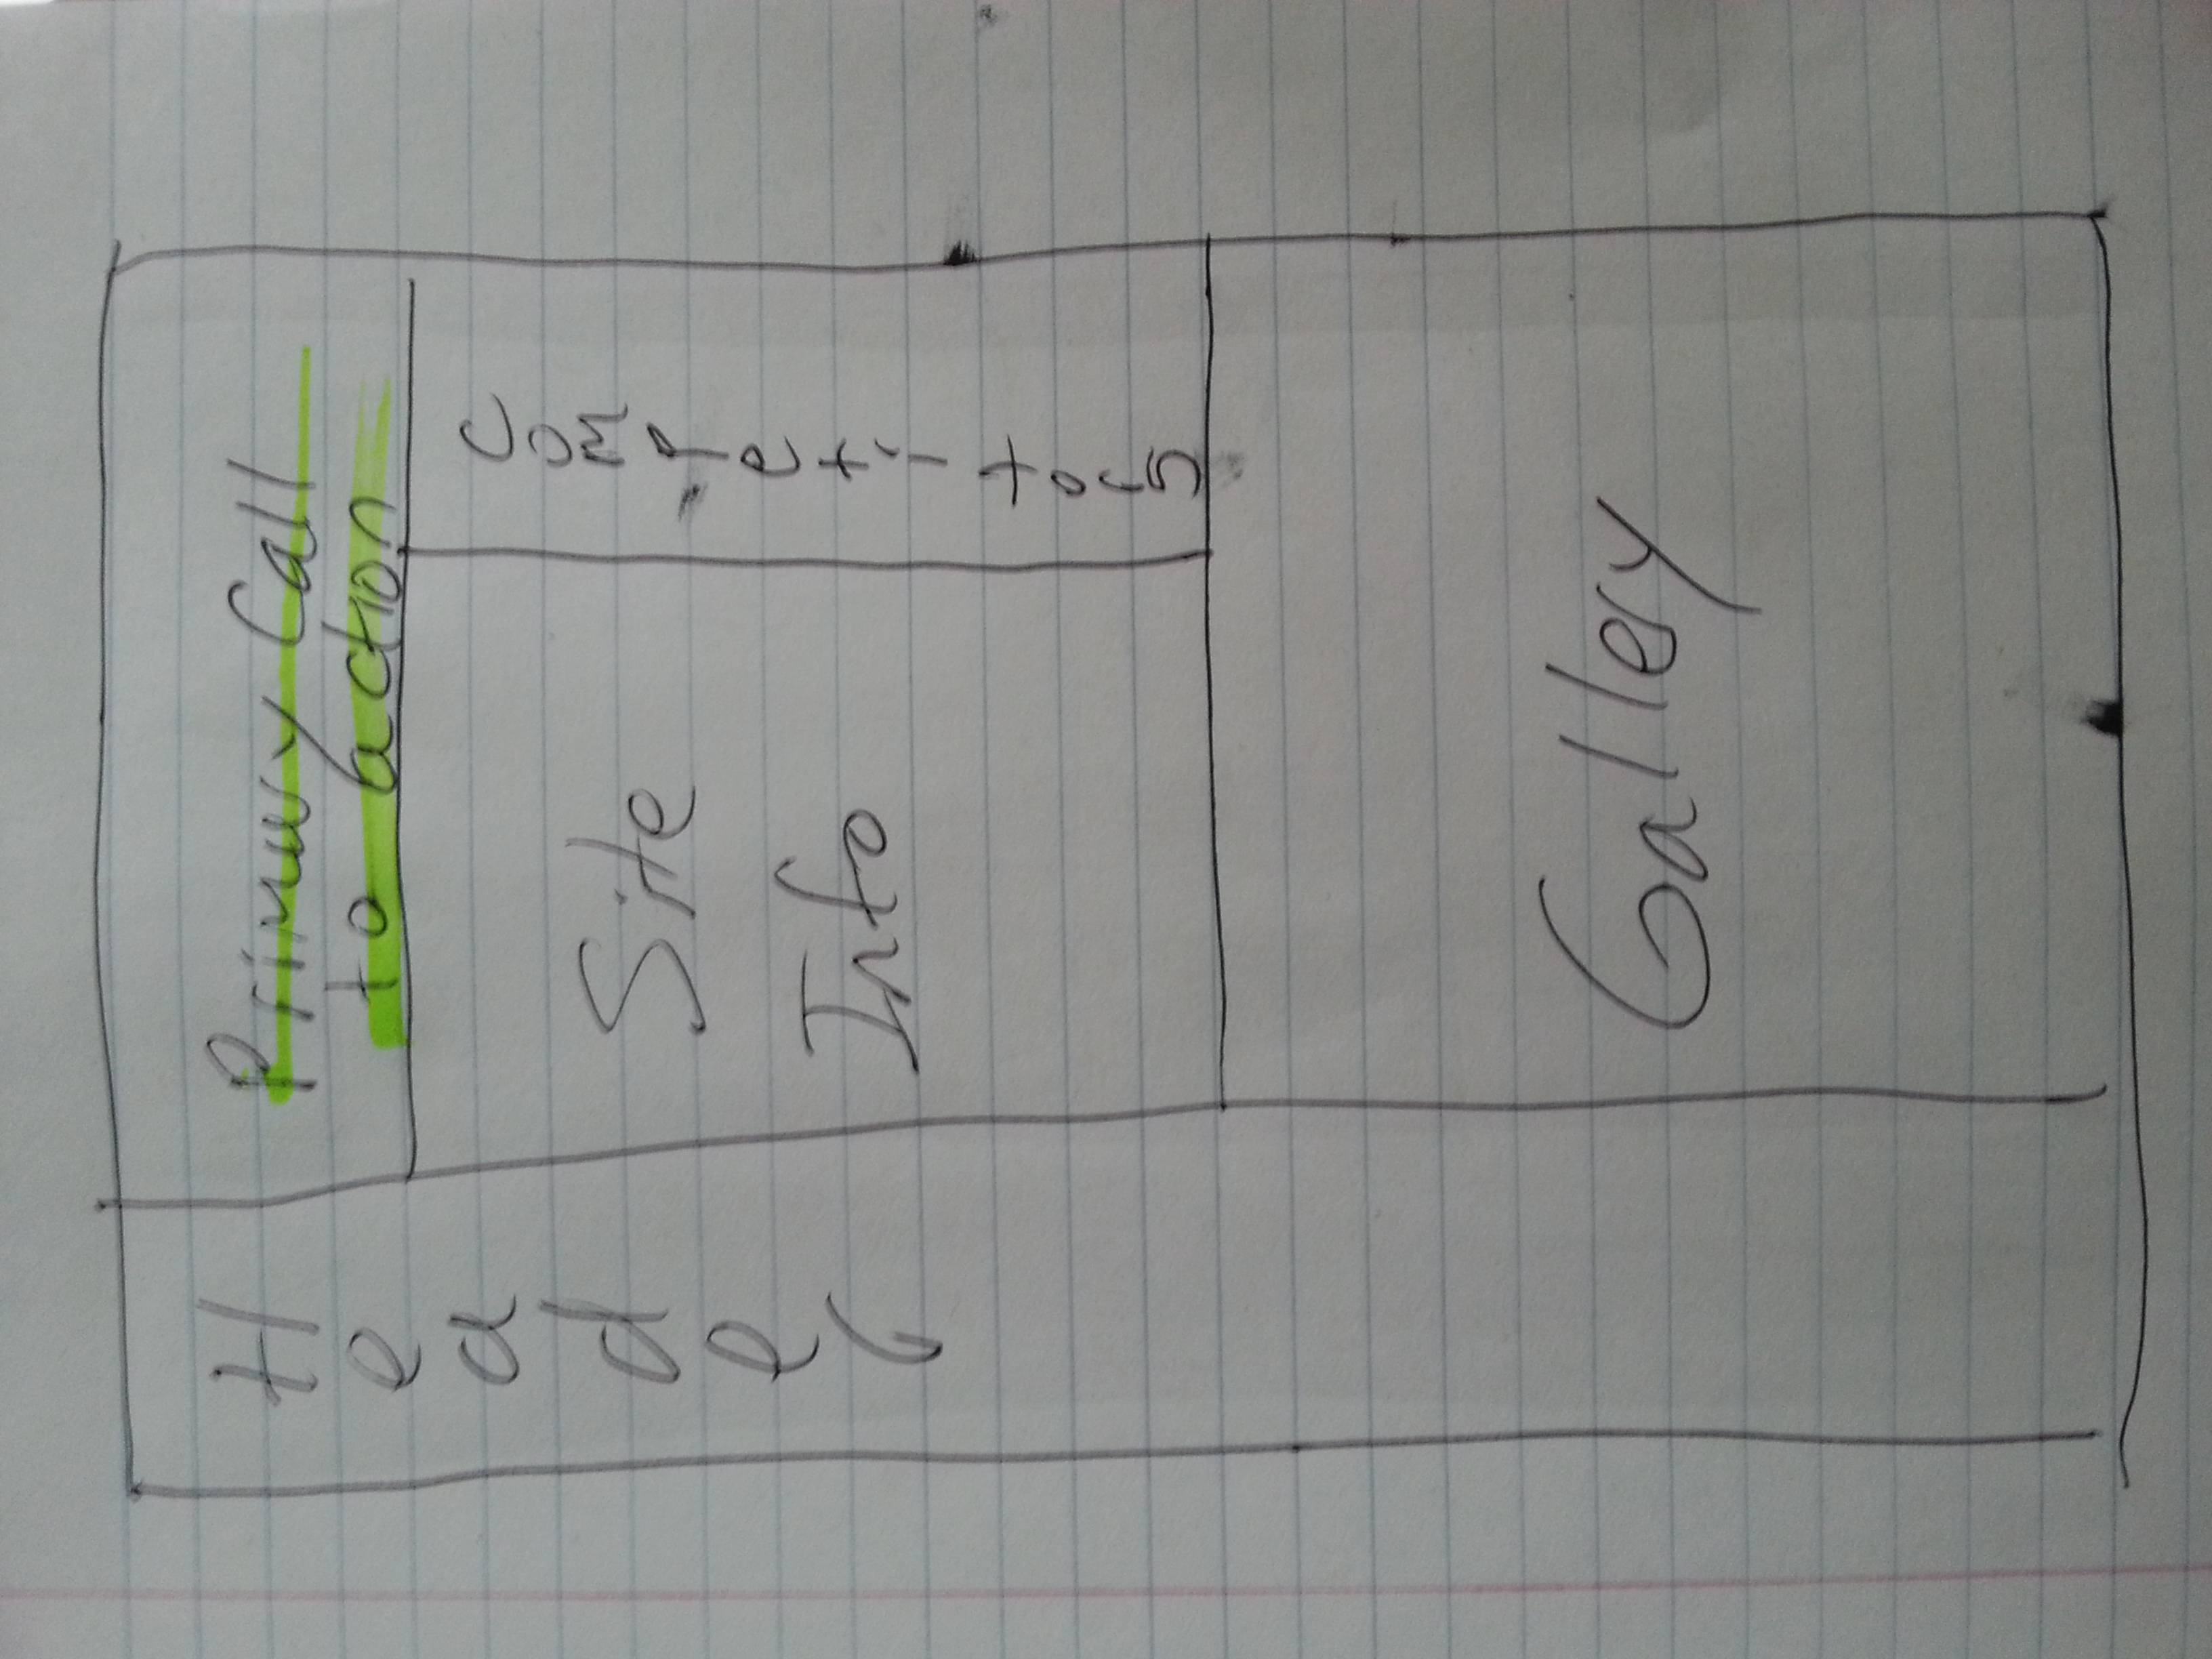 Header
Primary Call
to action
Site
Info
Competitors
Gallery